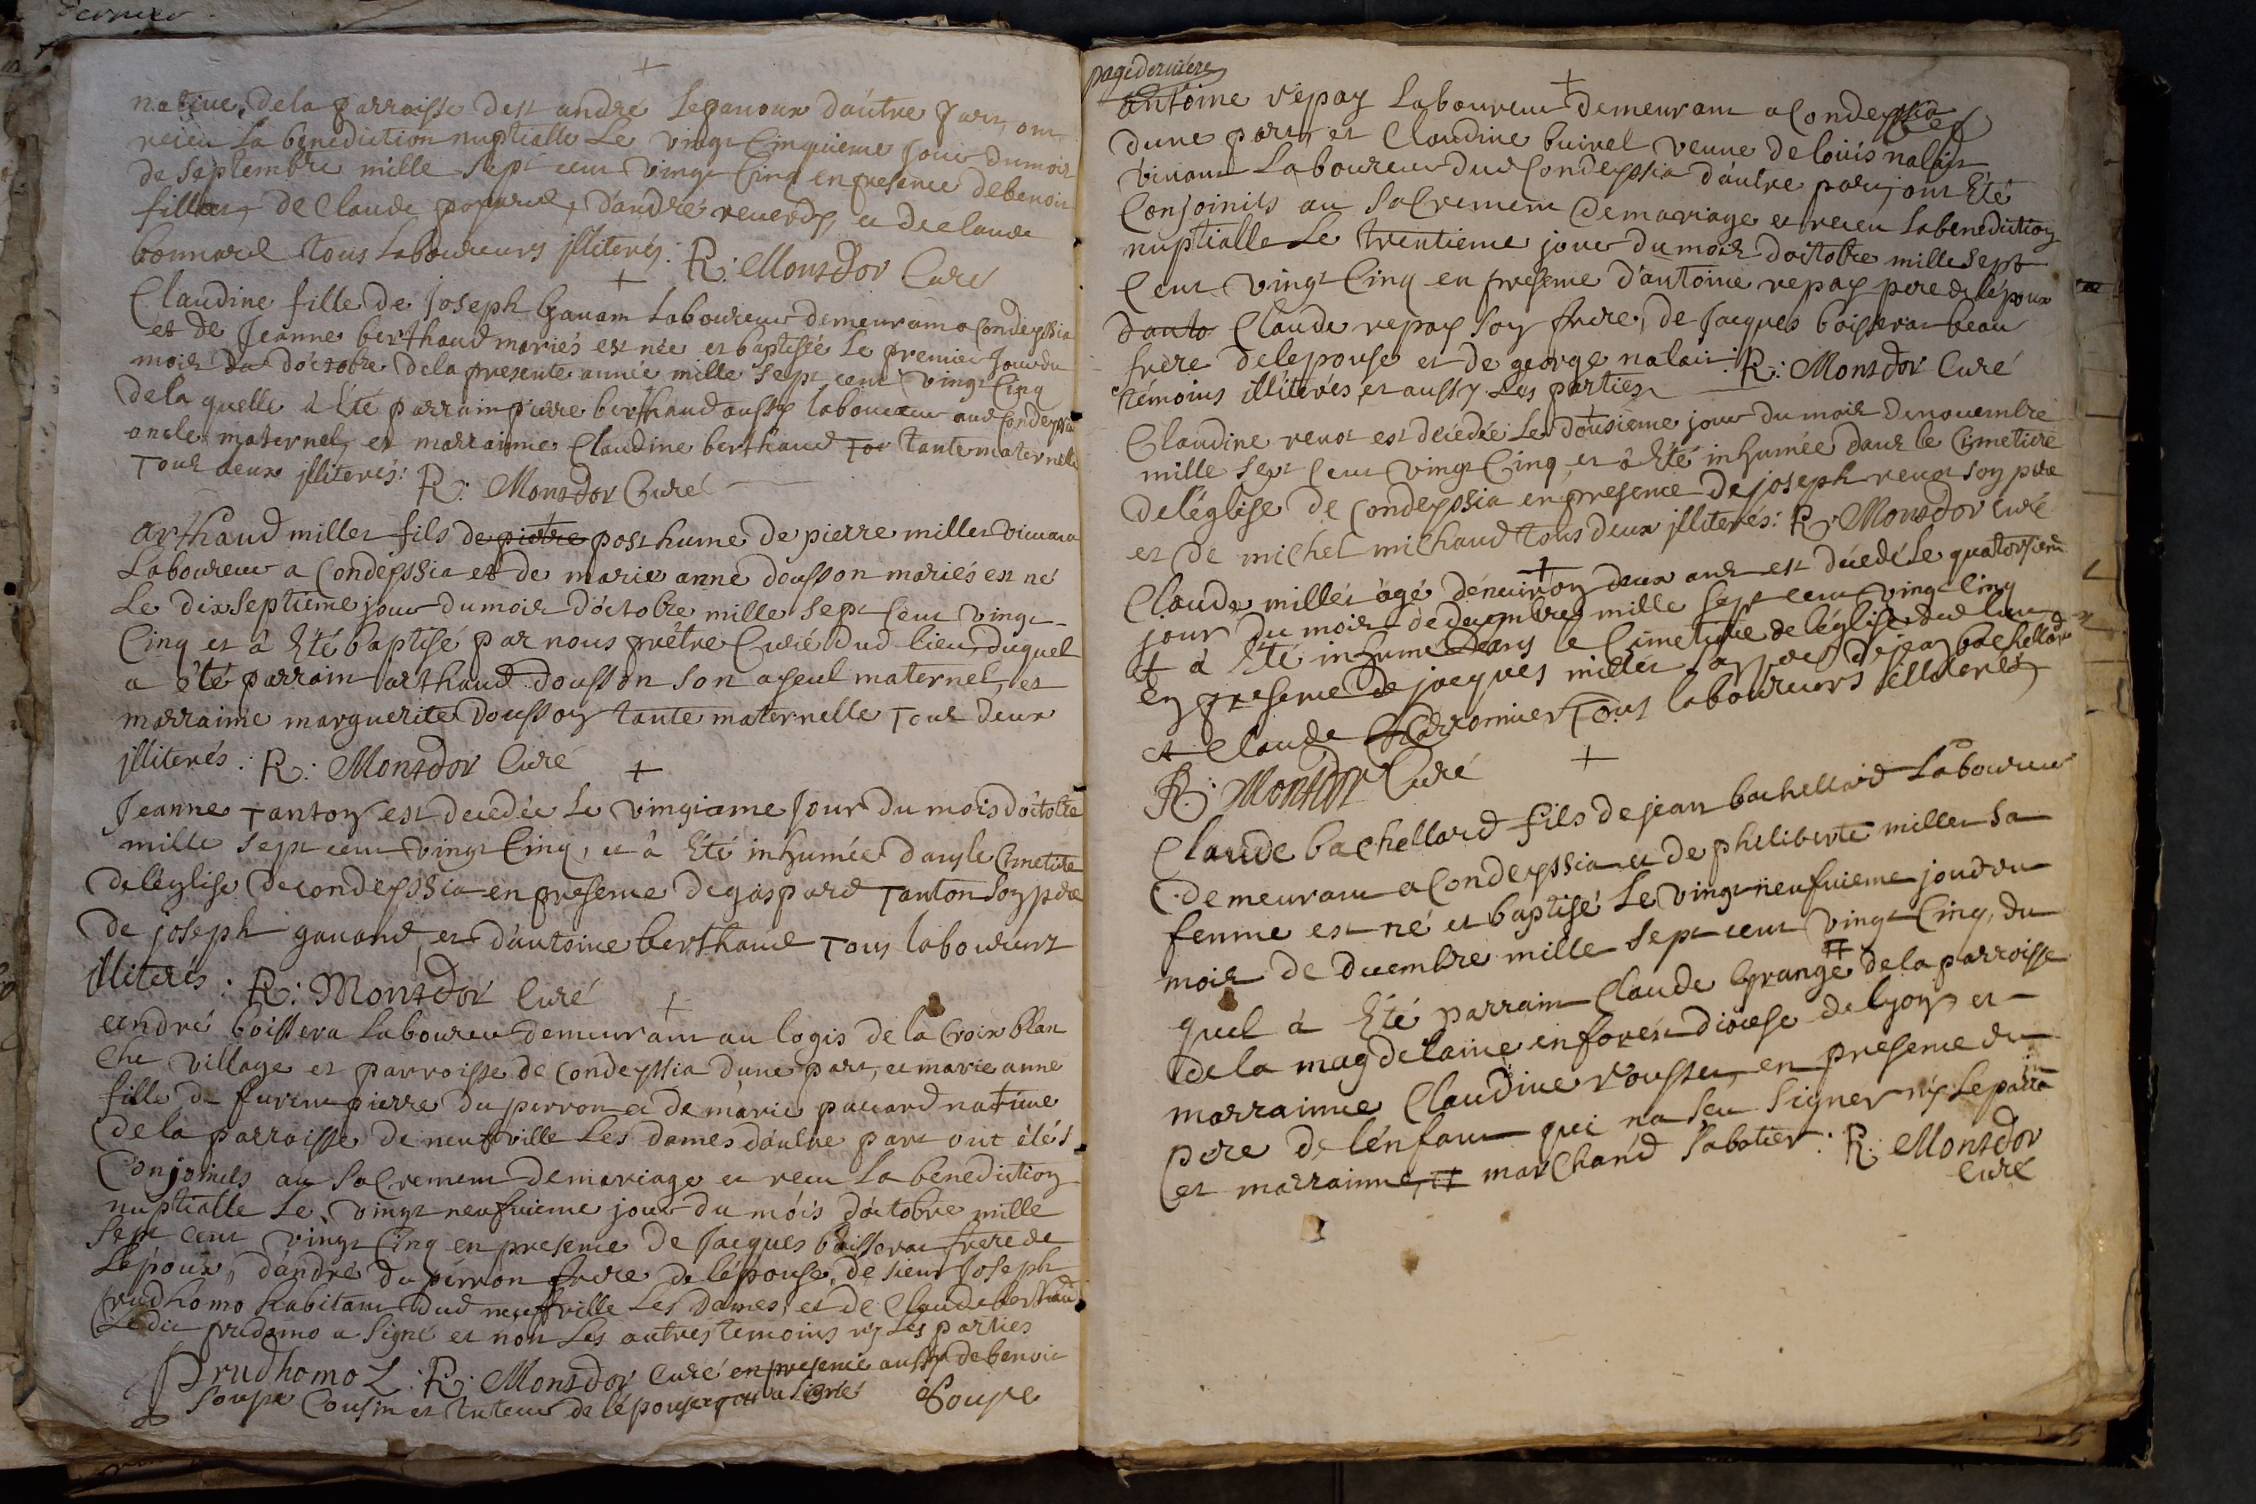 dernier
native de la parroisse de st andré le panoux d'autre part, ont
receu la benediction nuptialle Le vingt Cinquieme jour du mois
de septembre mille sept cent vingt Cinq en presence de benoit
de Claude d'andré reverdy et de claude
bonnard tous Laboureurs jlliterés: R: Monsdor Curé
Claudine fille de joseph Gavam Laboureur demeurant a Condeyssia
et de Jeanne berthaud mariés est née et baptisée Le premier jour du
mois du d'octobre de la presente année mille sept cent vingt Cinq
de la quelle à Eté parrain pierre berthaud aussy laboureur aud Condeyssia
oncle maternel, et marraine Claudine berthaud tante maternelle
Tous deux jlliterés: R: Monsdor Curé
arthaud millet fils de pierre posthume de pierre millet vivant
Laboureur a Condeyssia et de marie anne dousson mariés est né
Le dixseptieme jour du mois d'octobre mille sept Cent vingt
Cinq et à Eté baptisé par nous prêtre Curé dud lieu duquel
a êté parrain arthaud dousson son ayeul maternel, et
marraine marguerite doussoy tante maternelle Tous deux
jlliterés: R: Monsdor Curé
Jeanne Tantoy est decedée Le vingtieme jour du mois d'octobre
mille sept cent vingt Cinq, et à Eté inhumée dans le Cimetiere
de l'eglise de condeyssia en presence de gaspard Tanton soy pere
de joseph gavand, et d'antoine berthaud Tous laboureurs
jlliterés: R: Monsdor Curé
andré boissera Laboureur demeurant au logis de la Croix blan
che village et parroisse de condeyssia d'une part, et marie anne
fille de furent pierre du perron et de marie pauard native
de la parroisse de neufville Les dames d'autre part ont étés
Conjoincts au sacrement de mariage et receu La benediction
nuptialle Le vingt neufvieme jour du mois d'octobre mille
sept cent vingt Cinq en presence de jacques boisserat frere de
L'epoux, d'andré du perron frere de l'épouse, de sieur Joseph
Prudhomo habitant dud neufville Les dames, et de Claude berthaud
Le dit prudomo a signé et non Les autres temoins ny Les parties
Prudhomo L: R: Monsdor Curé en presence aussy de benoit
soupe Cousin et tuteur de l'épouse qui a signé Soupe
page derniere
antoine repay Laboureur demeurant a Condeyssia
d'une part, et Claudine buivel veuve de loüis nalait
vivant Laboureur dud Condeyssia d'autre part, ont Eté
Conjoincts au sacrement de mariage et receu La benediction
nuptialle Le trentieme jour du mois d'octobre mille sept
Cent vingt Cinq en presence d'antoine repay pere de l'epoux
d'anto Claude repay soy frere, de jacques boisserat beau
frere de l'epouse et de george nalait: R: Monsdor Curé
témoins jlliterés, et aussy Les parties
Claudine revot est decedée Le dousieme jour du mois de novembre
mille sept Cent vingt Cinq, et à Eté inhumée dans le Cimetiere
de l'église de Condeyssia en presence de joseph revot soy pere
et de michel michaud tous deux jlliterés: R: Monsdor Curé
Claude millet àgé d'environ deux ans est decedé Le quatorsieme
jour du mois de decembre mille sept cent vingt Cinq
et à Eté inhumé dans le Cimetiere de l'église dud lieu
en presence de jacques millet soy pere de jean bachellard
et Claude Charromier Tous laboureurs illiterés
R: Monsdor Curé
Claude bachellard fils de jean bachellard Laboureur
demeurant a Condeyssia et de philiberte millet sa
femme est né et baptisé Le vingt neufvieme jour du
mois de decembre mille sept cent vingt Cinq, du
quel à Eté parrain Claude Grange ⌗ de la parroisse
de la magdelaine en forest diocese de lyon, et
marraine Claudine rousset, en presence du
pere de l'énfant qui na sçu signer ny Le parrain
et marraine, ⌗ marchand sabotier: R: Monsdor
Curé